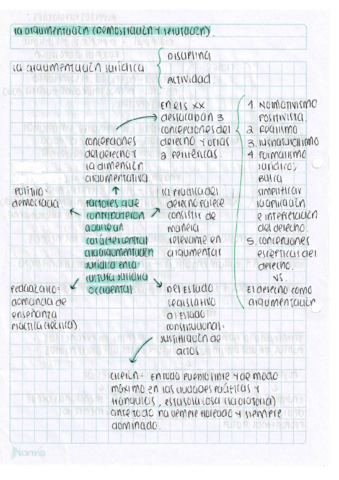 la argumentación (demostración y refutación).
la argumentación jurídica
Disciplina
Actividad
En el s XX
destacaban 3
concepciones del
derecho y otras
2 periféricas
1. Normativismo
positivista.
2. Realismo
3. Iusnaturalismo
4. Formalismo
jurídico;
busca
simplificar
la aplicación
e interpretación
del derecho.
5. concepciones
escépticas del
derecho.
vs
El derecho como
argumentación
concepciones
del derecho y
la dimensión
argumentativa
Político-
democracia
Factores que
contribuyeron
a
carácter central
a la argumentación
jurídica en la
cultura jurídica
occidental
la práctica del
derecho parece
consistir de
manera
relevante en
argumentar
Pedagógico-
demanda de
enseñanza
práctica (técnica)
Del Estado
legislativo
al Estado
constitucional-
justificación de
actos
Cicerón- En todo pueblo libre y de modo
máximo en las ciudades pacíficas y
tranquilas, esta sola cosa (la oratoria)
ante todo ha siempre floreado y siempre
dominado.
Norma